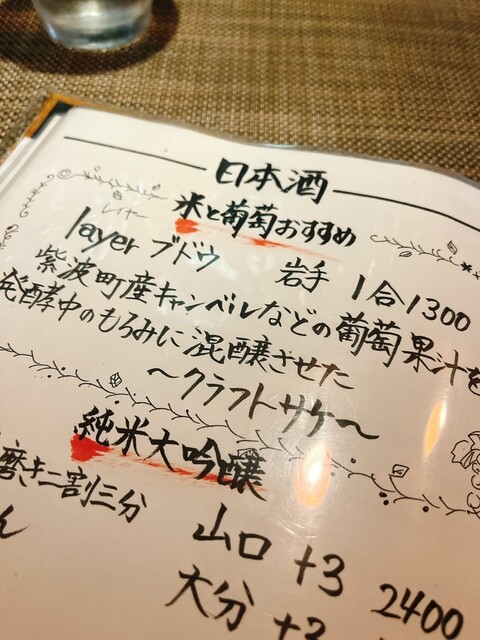 日本酒
米と葡萄おすすめ
レイヤー
layer ブドウ 岩手 1合1300
紫波町産キャンベルなどの葡萄果汁を
発酵中のもろみに混醸させた
～クラフトサケ～
純米大吟醸
磨き二割三分
山口 +3 2400
ん
大分 +3